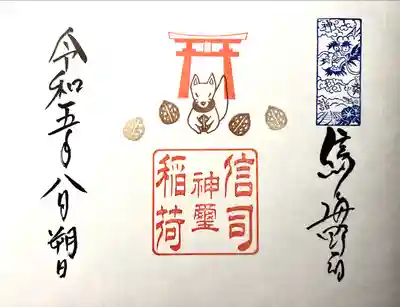 海野
信司
神璽
稲荷
令和五年八月朔日